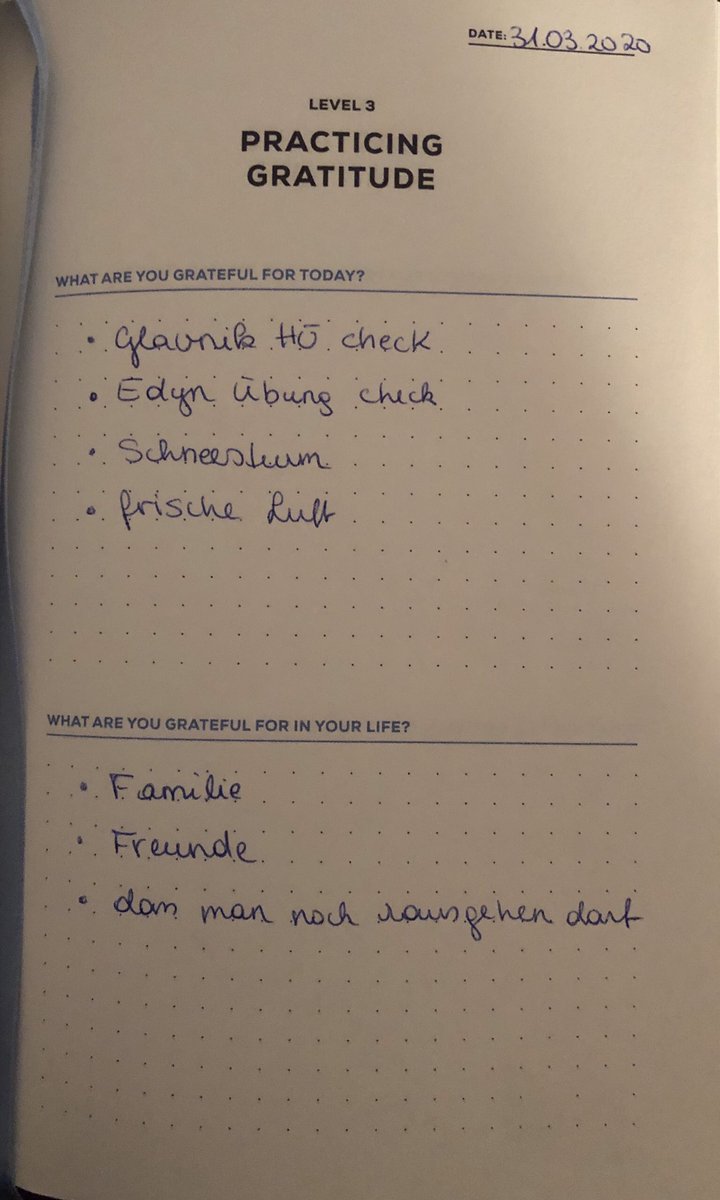 DATE: 31.03.2020
LEVEL 3
PRACTICING
GRATITUDE
WHAT ARE YOU GRATEFUL FOR TODAY?
• Glavnik HÜ check
• Edyn Übung check
• Schneesturm
• frische Luft
WHAT ARE YOU GRATEFUL FOR IN YOUR LIFE?
• Familie
• Freunde
• dass man noch rausgehen darf